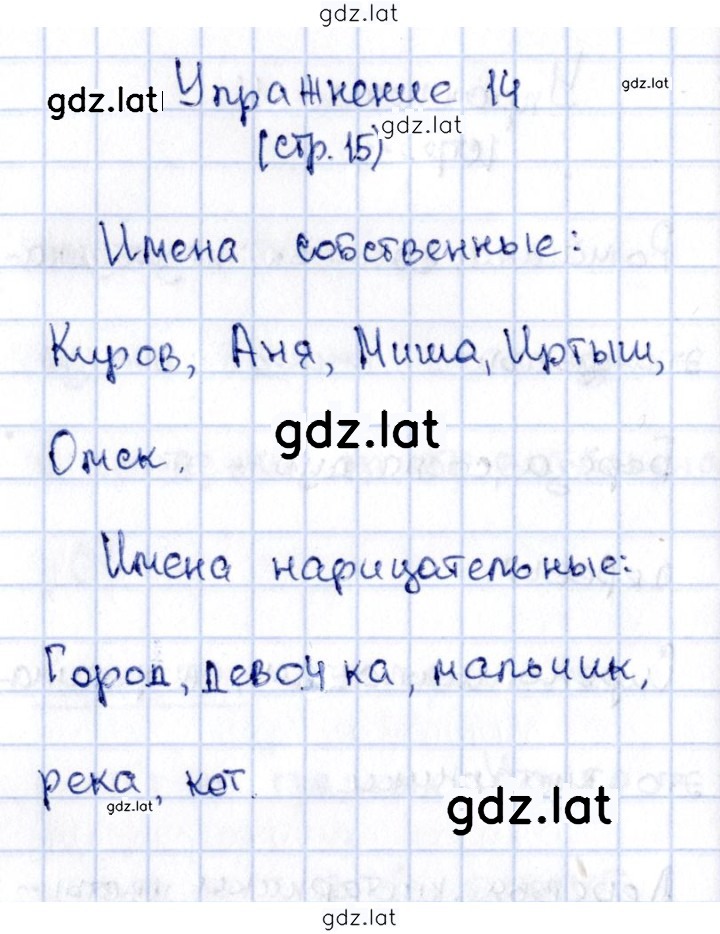 gdz.lat
Упражнение 14
gdz.lat
gdz.lat
gdz.lat
(стр. 15)
Имена собственные:
Киров, Аня, Миша, Иртыш,
gdz.lat
Омск.
Имена нарицательные:
Город, девочка, мальчик,
река, кот.
gdz.lat
gdz.lat
gdz.lat